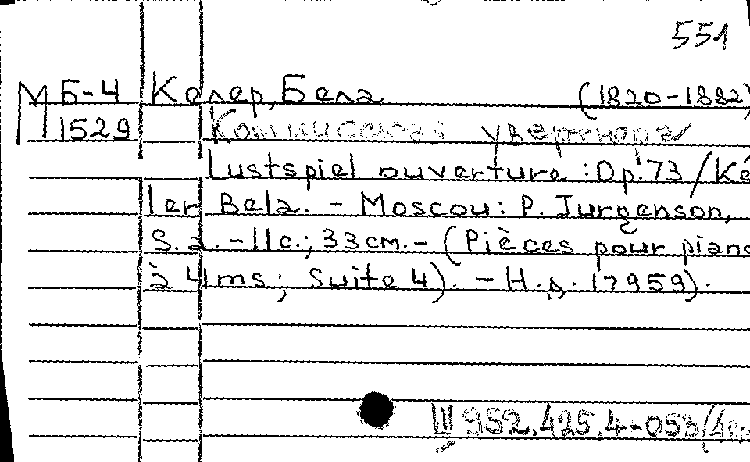 551
М Б-4 Келер, Бела (1820-1882)
1529 Комическая увертюра
Lustspiel ouverture : Op. 73 / Ké
ler Bela. - Moscou : P. Jurgenson,
S.a. - 11c.; 33cm. - (Pièces pour piano
à 4 ms; Suite 4). - Н.д. 17959).
III 952.425.4-053